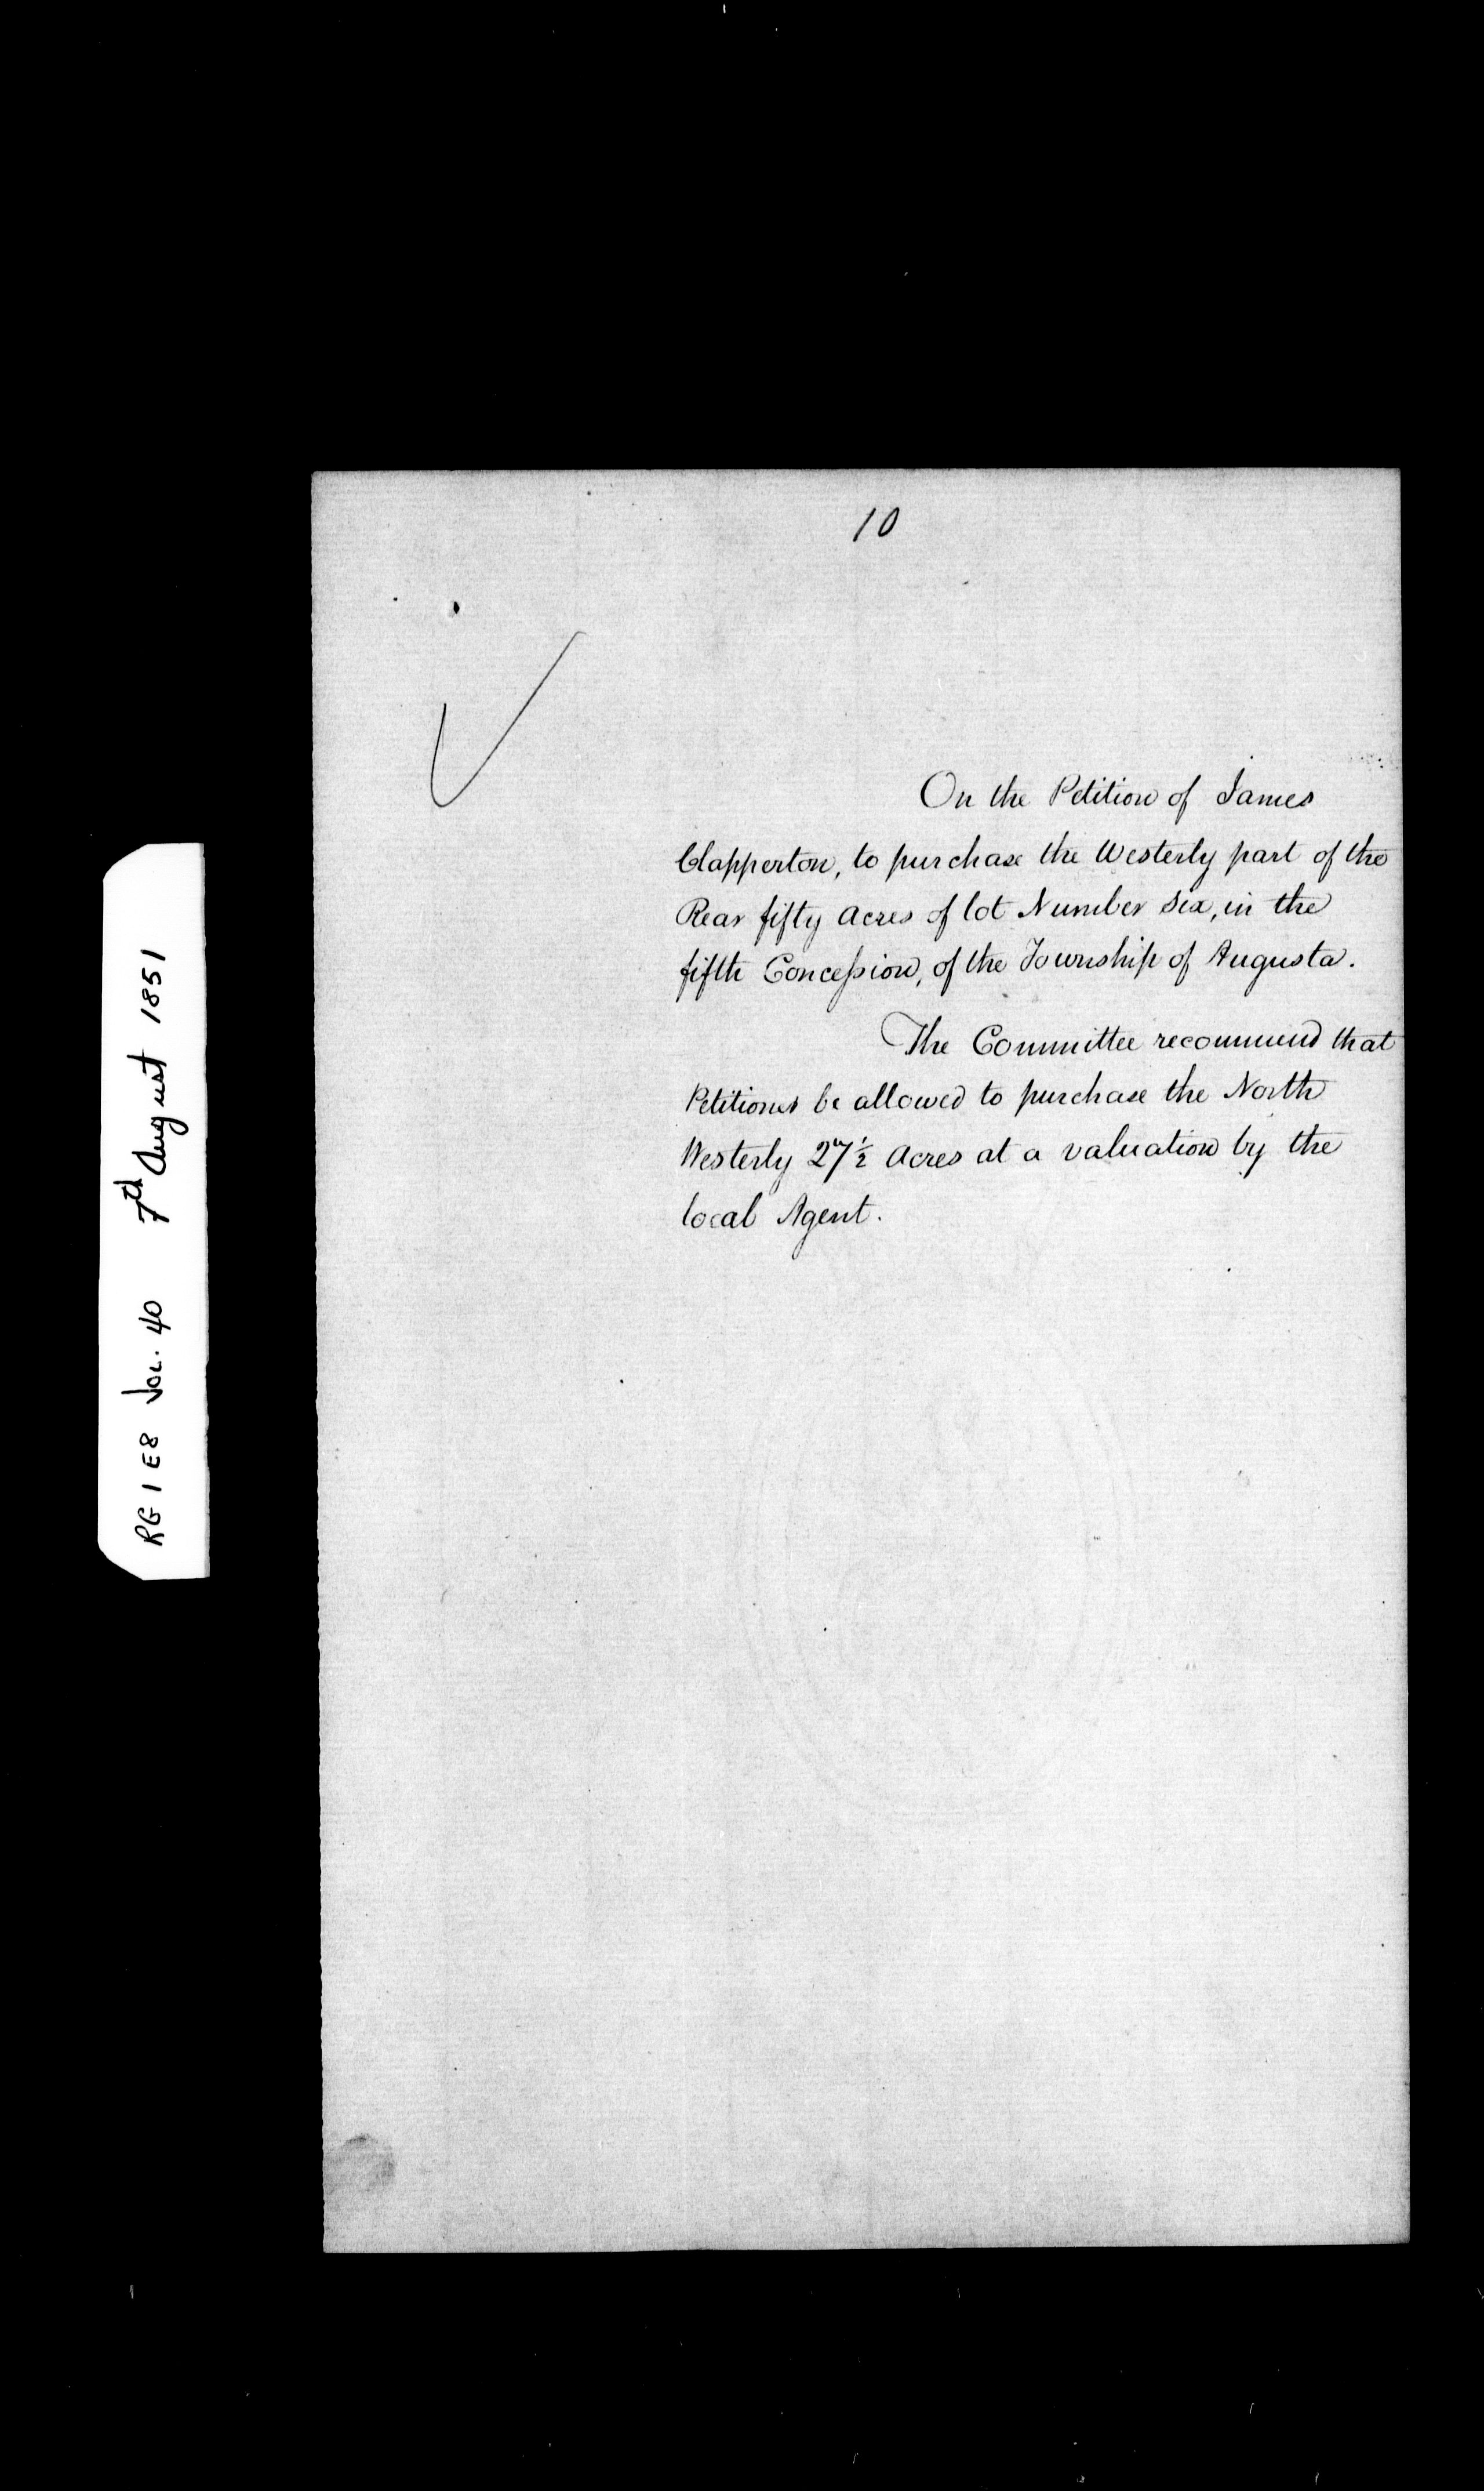 10
On the Petition of James
Clapperton, to purchase the Westerly part of the
Rear fifty Acres of lot Number Six, in the
fifth Concession, of the Township of Augusta.
The Committee recommend that
Petitioner be allowed to purchase the North
Westerly 27½ Acres at a valuation by the
local Agent.
RG 1 E8 VOL. 40 7th August 1851